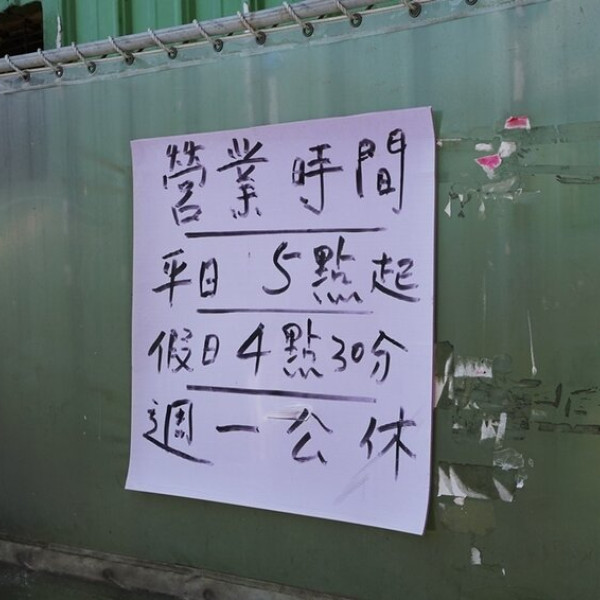 營業時間
平日 5點起
假日4點30分
週一公休